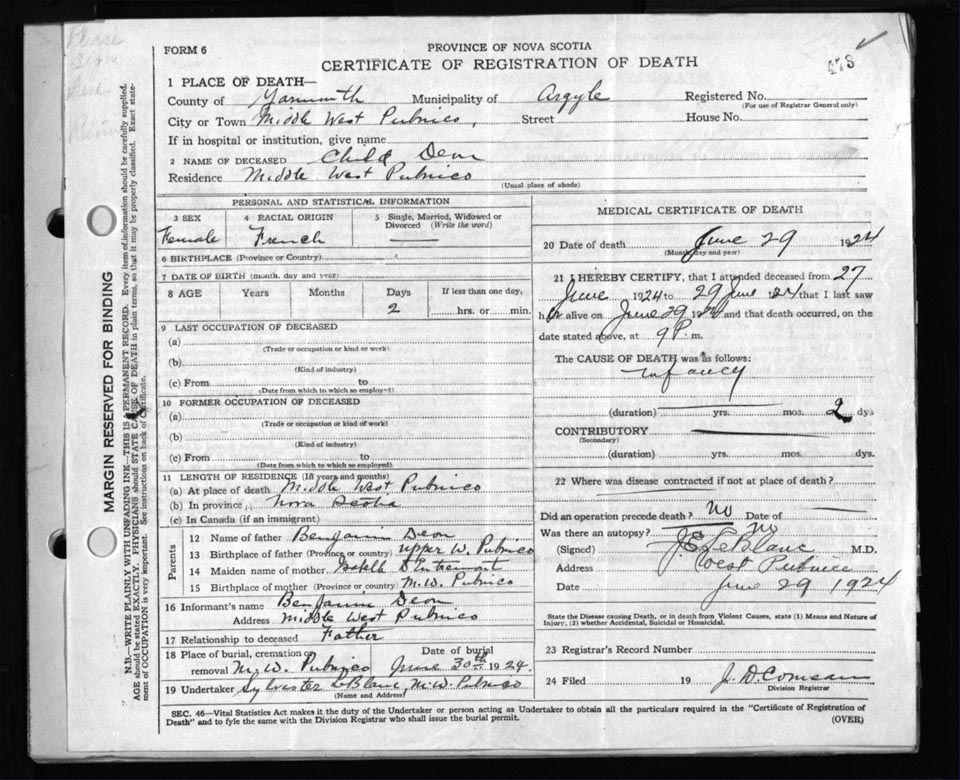 FORM 6
PROVINCE OF NOVA SCOTIA
CERTIFICATE OF REGISTRATION OF DEATH
478
1 PLACE OF DEATH—
County of Yarmouth Municipality of Argyle Registered No.
(For use of Registrar General only)
City or Town Middle West Pubnico, Street House No.
If in hospital or institution, give name
2 NAME OF DECEASED Child Deon
Residence Middle West Pubnico
(Usual place of abode)
PERSONAL AND STATISTICAL INFORMATION
3 SEX
Female
4 RACIAL ORIGIN
French
5 Single, Married, Widowed or Divorced (Write the word)
6 BIRTHPLACE (Province or Country)
7 DATE OF BIRTH (month, day and year)
8 AGE Years Months Days If less than one day,
2 hrs. or min.
9 LAST OCCUPATION OF DECEASED
(a)
(Trade or occupation or kind or work)
(b)
(Kind of industry)
(c) From to
(Date from which to which so employed)
10 FORMER OCCUPATION OF DECEASED
(a)
(Trade or occupation or kind of work)
(b)
(Kind of industry)
(c) From to
(Date from which to which so employed)
11 LENGTH OF RESIDENCE (In years and months)
(a) At place of death Middle West Pubnico
(b) In province Nova Scotia
(c) In Canada (if an immigrant)
Parents
12 Name of father Benjamin Deon
13 Birthplace of father (Province or country) upper W. Pubnico
14 Maiden name of mother Isabelle D'Entremont
15 Birthplace of mother (Province or country) M.W. Pubnico
16 Informant's name Benjamin Deon
Address Middle West Pubnico
17 Relationship to deceased Father
18 Place of burial, cremation or removal M.W. Pubnico
Date of burial June 30th 1924.
19 Undertaker Sylvester LeBlanc M.W. Pubnico
(Name and Address)
MEDICAL CERTIFICATE OF DEATH
20 Date of death June 29 1924
(Month, day and year)
21 I HEREBY CERTIFY, that I attended deceased from 27
June 1924 to 29 June 1924 that I last saw
h er alive on June 29 1924 and that death occurred, on the
date stated above, at 9 P. m.
The CAUSE OF DEATH was as follows:
Infancy
(duration) yrs. mos. 2 dys
CONTRIBUTORY
(Secondary)
(duration) yrs. mos. dys.
22 Where was disease contracted if not at place of death?
Did an operation precede death? No Date of
Was there an autopsy? No
(Signed) J.E. LeBlanc M.D.
Address West Pubnico
Date June 29 1924
State the Disease causing Death, or in death from Violent Causes, state (1) Means and Nature of Injury, (2) whether Accidental, Suicidal or Homicidal.
23 Registrar's Record Number
24 Filed 19 J. D. Comeau
Division Registrar
SEC. 46—Vital Statistics Act makes it the duty of the Undertaker or person acting as Undertaker to obtain all the particulars required in the "Certificate of Registration of
Death" and to fyle the same with the Division Registrar who shall issue the burial permit.
(OVER)
MARGIN RESERVED FOR BINDING
N.B.—WRITE PLAINLY WITH UNFADING INK—THIS IS A PERMANENT RECORD. Every item of information should be carefully supplied.
AGE should be stated EXACTLY. PHYSICIANS should STATE CAUSE OF DEATH in plain terms, so that it may be properly classified. Exact statement of OCCUPATION is very important. See instructions on back of Certificate.